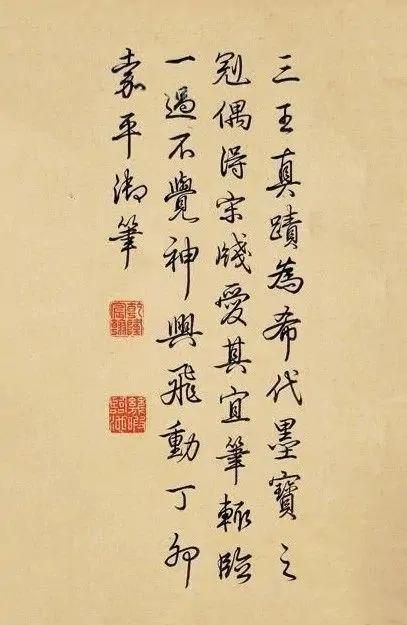 三王真蹟為希代墨寶之
冠偶得宋牋愛其宜筆輒臨
一過不覺神興飛動丁卯
嘉平御筆
乾隆宸翰
幾暇臨池